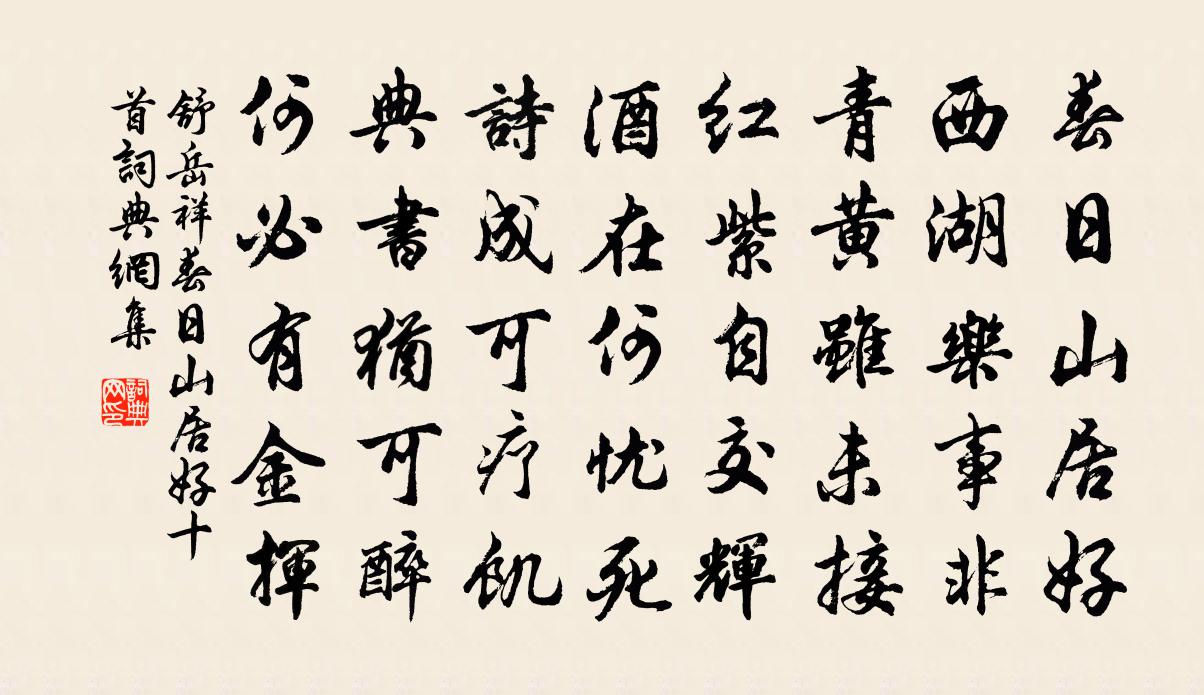 春日山居好
西湖樂事非
青黃雖未接
红紫自交輝
酒在何忧死
詩成可疗飢
典書猶可醉
何必有金揮
舒岳祥春日山居好十
首詞典網集
詞典网印